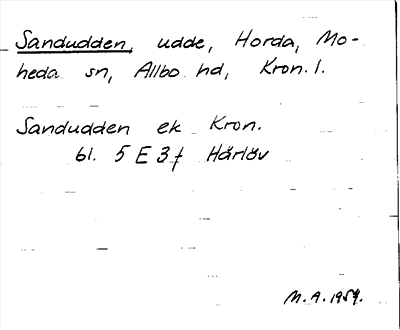 Sandudden, udde, Horda, Mo-
heda sn, Allbo hd, Kron. l.
Sandudden ek Kron.
bl. 5 E 3 f Härlöv
M. A. 1959.